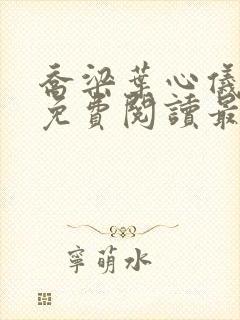 喬梁葉心儀
免費閱讀最
寧萌水